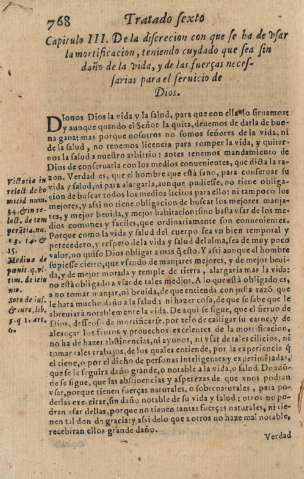 768 Tratado sexto
Capitulo III. De la discrecion con que se ha de vsar
la mortificacion, teniendo cuydado que sea sin
daño de la vida, y de las fuerças neces-
sarias para el seruicio de
Dios.
Dionos Dios la vida y la salud, para que con ella lo siruamos
y aunque quando el Señor la quita, deuemos de darla de bue-
na gana; mas porque nosotros no somos señores de la vida, ni
de la salud, no tenemos licencia para romper la vida, y quitar-
nos la salud a nuestro arbitrio; antes tenemos mandamiento de
Dios de conseruarla con los medios conuenientes, que dicta la ra-
zon. Verdad es, que el hombre que está sano, para conseruar su
vida y salud, ni para alargarla, aunque pudiesse, no tiene obliga-
cion de buscar todos los medios licitos para ello: ni tampoco los
mejores, y assi no tiene obligacion de buscar los mejores manja-
res, y mejor beuida, y mejor habitacion: sino basta vsar de los me-
dios comunes y faciles, que ordinariamente son conuenientes.
Porque como la vida y salud del cuerpo sea vn bien temporal y
perecedero, y respeto de la vida y salud del alma, sea de muy poco
valor, no quiso Dios obligar a mas q̃ esto. Y assi aunque el hombre
supiesse cierto, que vsando de manjares mejores, y de mejor beui-
da, y de mejor morada y temple de tierra, alargaria mas la vida:
no està obligado a vsar de tales medios. A lo que està obligado es,
a no tomar manjar, ni beuida, de que entienda con justa razõ que
le hara mucho daño a la salud: ni hazer cosa, de que se sabe que le
abreuiará notablemente la vida. De aqui se sigue, que el sieruo de
Dios, desseoso de mortificarse, por zelo de castigar su carne, y de
alcançar los frutos y prouechos excelentes de la mortificacion,
no ha de hazer abstinencias, ni ayunos, ni vsar de tales cilicios, ni
tomar tales trabajos, de los quales entiende, por la experiencia q̃
el tiene, o por el dicho de personas inteligentes y experimẽtadas,
que se le seguira daño grande, o notable a la vida, o salud. De adõ-
de se sigue, que las abstinencias y asperezas de que vnos podran
vsar, porque tienen fuerças naturales, o sobrenaturales, para po-
derlas exercitar, sin daño notable de su vida y salud: otros no po-
dran vsar dellas, porque no tienen tantas fuerças naturales, ni tie-
nen tal don de gracia: y assi de lo que a otros no haze mal notable,
recebiran ellos grande daño.
Verdad
Victoria in
relect. de ho-
micid. num.
Medina de